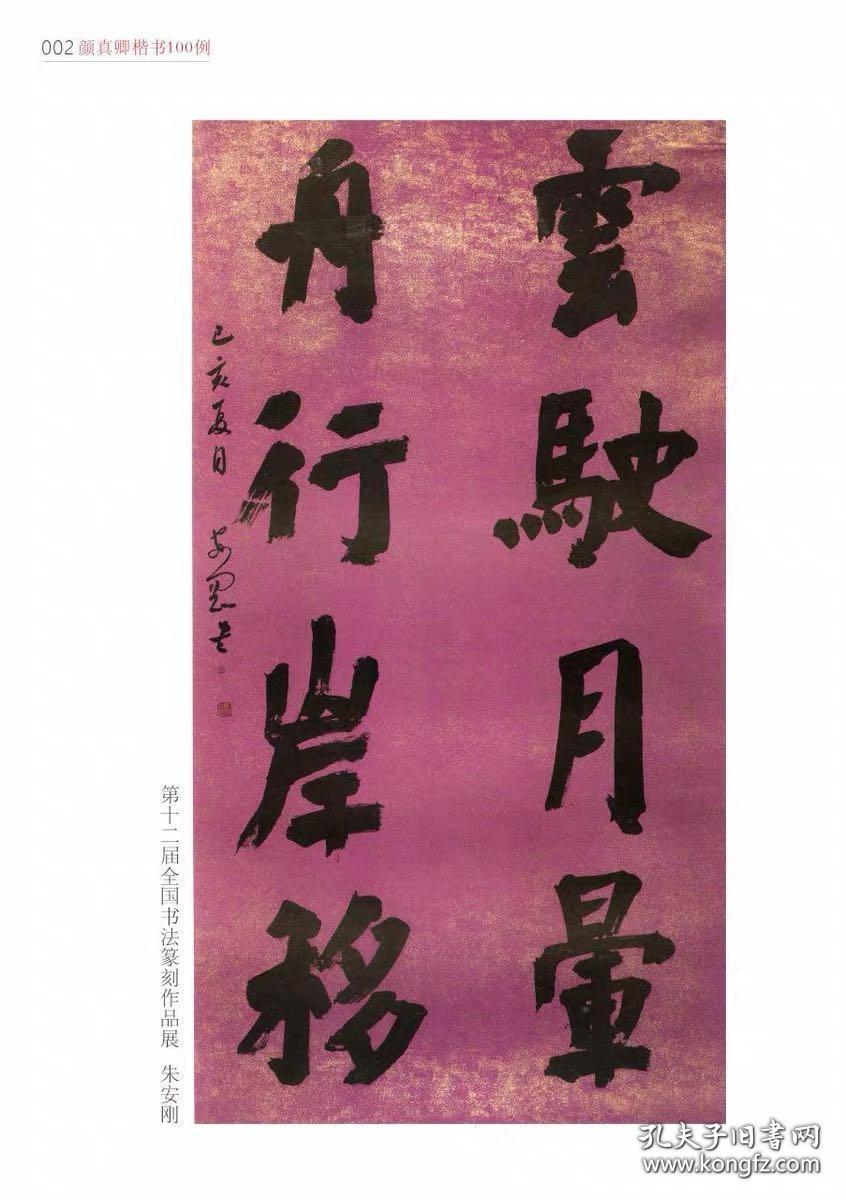 002 颜真卿楷书100例
雲駛月暈
舟行岸移
己亥夏月
第十二届全国书法篆刻作品展 朱安刚
孔夫子旧书网
www.kongfz.com